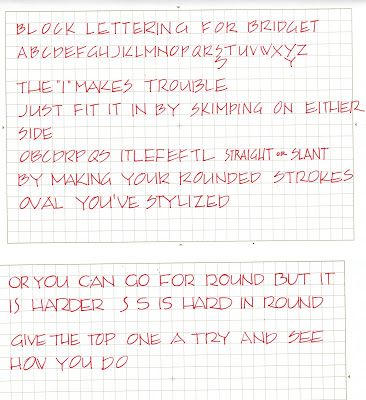 BLOCK LETTERING FOR BRIDGET
ABCDEFGHJKLMNOPQRSTUVWXYZ
S Y
THE "I" MAKES TROUBLE
JUST FIT IT IN BY SKIMPING ON EITHER
SIDE
OBCDRPQS ITLEFEFTL STRAIGHT OR SLANT
BY MAKING YOUR ROUNDED STROKES
OVAL YOU'VE STYLIZED
OR YOU CAN GO FOR ROUND BUT IT
IS HARDER S S IS HARD IN ROUND
GIVE THE TOP ONE A TRY AND SEE
HOW YOU DO